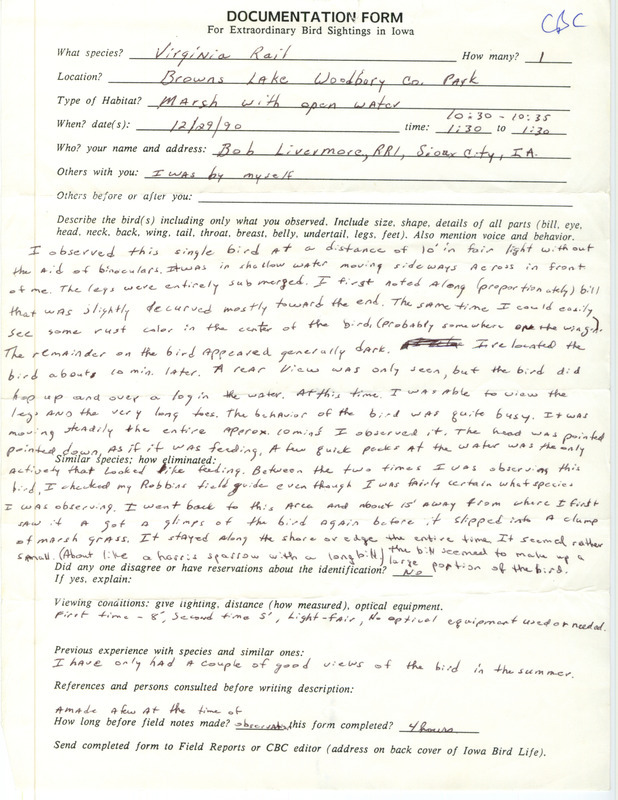 DOCUMENTATION FORM
For Extraordinary Bird Sightings in Iowa
CBC
What species? Virginia Rail How many? 1
Location? Browns Lake Woodbury Co. Park
Type of Habitat? Marsh with open water
10:30 - 10:35
When? date(s): 12/29/90 time: 1:30 to 1:30
Who? your name and address: Bob Livermore, RR1, Sioux City, IA.
Others with you: I was by myself
Others before or after you:
Describe the bird(s) including only what you observed. Include size, shape, details of all parts (bill, eye,
head, neck, back, wing, tail, throat, breast, belly, undertail, legs, feet). Also mention voice and behavior.
I observed this single bird at a distance of 10' in fair light without
the aid of binoculars. It was in shallow water moving sideways across in front
of me. The legs were entirely submerged. I first noted along (proportionately) bill
that was slightly decurved mostly toward the end. The same time I could easily
see some rust color in the center of the bird, (probably somewhere on the wings).
The remainder on the bird appeared generally dark. I relocated the
bird about 10 min. later. A rear view was only seen, but the bird did
hop up and over a log in the water. At this time I was able to view the
legs and the very long toes. The behavior of the bird was quite busy. It was
moving steadily the entire approx. 10 mins I observed it. The head was pointed
pointed down, as if it was feeding. A few quick pecks at the water was the only
Similar species; how eliminated:
activety that looked like feeding. Between the two times I was observing this
bird, I checked my Robbins field guide even though I was fairly certain what species
I was observing. I went back to this area and about 15' away from where I first
saw it a got a glimps of the bird again before it slipped into a clump
of marsh grass. It stayed along the shore or edge the entire time. It seemed rather
small. (About like a harris sparrow with a long bill) the bill seemed to make up a
Did any one disagree or have reservations about the identification? No large portion of the bird.
If yes, explain:
Viewing conditions: give lighting, distance (how measured), optical equipment.
First time - 8', Second time 5', Light-fair, No optical equipment used or needed.
Previous experience with species and similar ones:
I have only had a couple of good views of the bird in the summer.
References and persons consulted before writing description:
A made a few at the time of
How long before field notes made? observation this form completed? 4 hours
Send completed form to Field Reports or CBC editor (address on back cover of Iowa Bird Life).